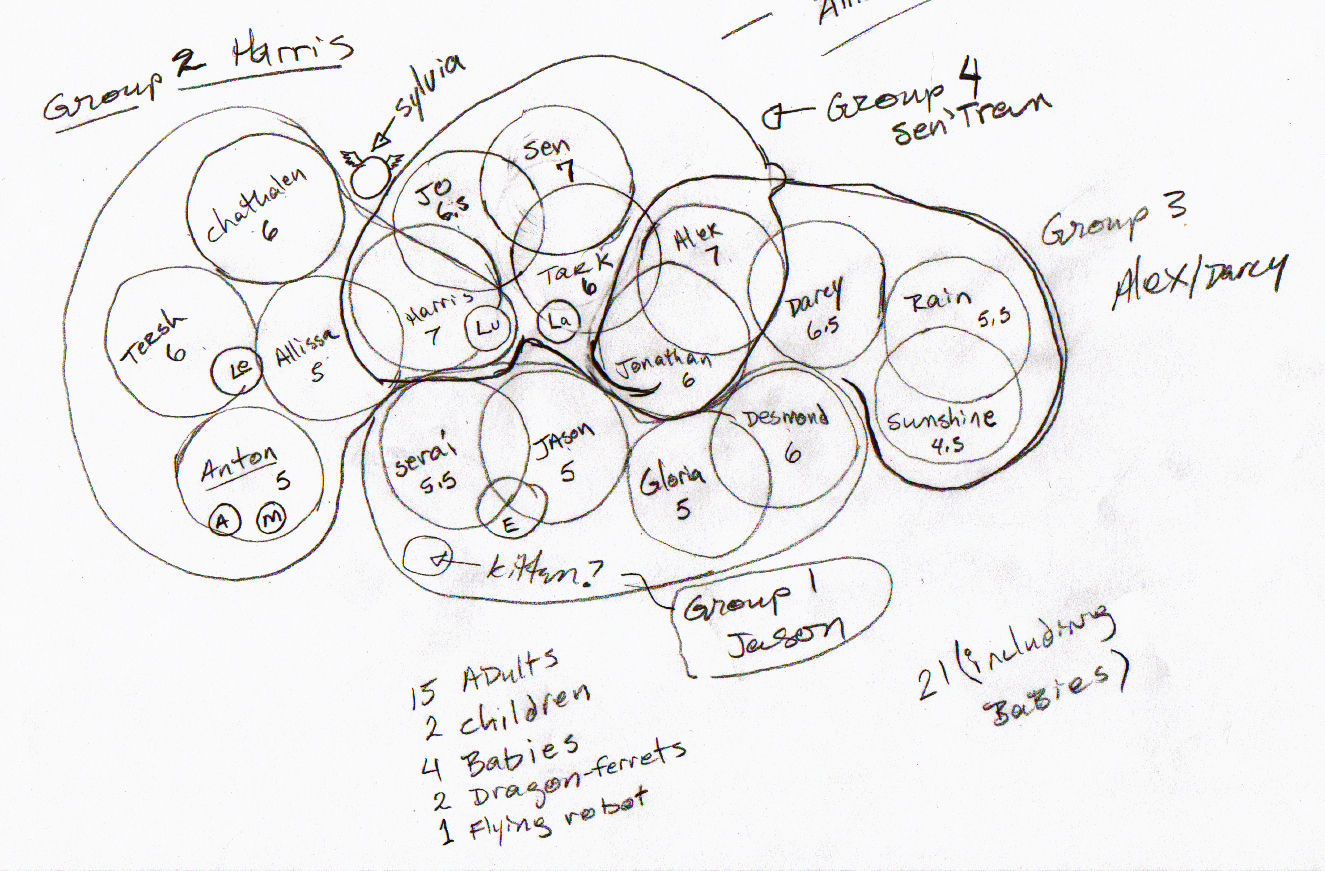 Group 2 Harris
sylvia
Group 4
Sen'Tran
Group 3
Alex/Darcy
Chathalen
6
Tersh
6
Le
Allissa
5
Anton
5
A
M
Jo
6.5
Sen
7
Harris
7
Lu
Tark
6
La
Alex
7
Jonathan
6
Darcy
6.5
Rain
5.5
Sunshine
4.5
Serai
5.5
Jason
5
E
Gloria
5
Desmond
6
kitten?
Group 1
Jason
15 Adults
2 children
4 Babies
2 Dragon-ferrets
1 Flying robot
21 (including
Babies)